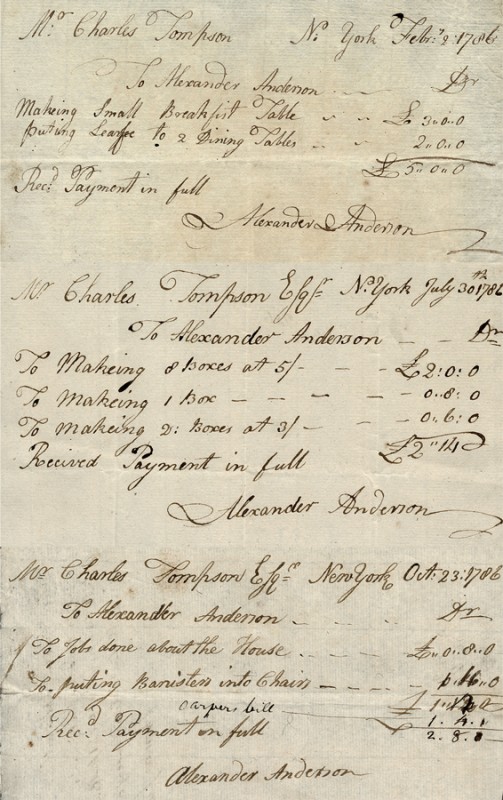 Mr. Charles Tompson No. York Febr.y 2: 1786
To Alexander Anderson Dr
Makeing Small Breakfist Table £ 3"0"0
puting Leafe to 2 Dining Tables 2"0"0
£ 5"0"0
Recd. Payment in full
Alexander Anderson
Mr Charles Tompson Esqr No. York July 30th 1786
To Alexander Anderson Dr
To Makeing 8 Boxes at 5/- £2:0:0
To Makeing 1 Box 0"8:0
To Makeing 2: Boxes at 3/- 0"6:0
£2"14
Recived Payment in full
Alexander Anderson
Mr Charles Tompson Esqr New York Oct. 23: 1786
To Alexander Anderson Dr
To Jobs done about the House £"0"8"0
To puting Banisters into Chairs 0
Carpers bill
Recd Payment in full
2.8.0
Alexander Anderson